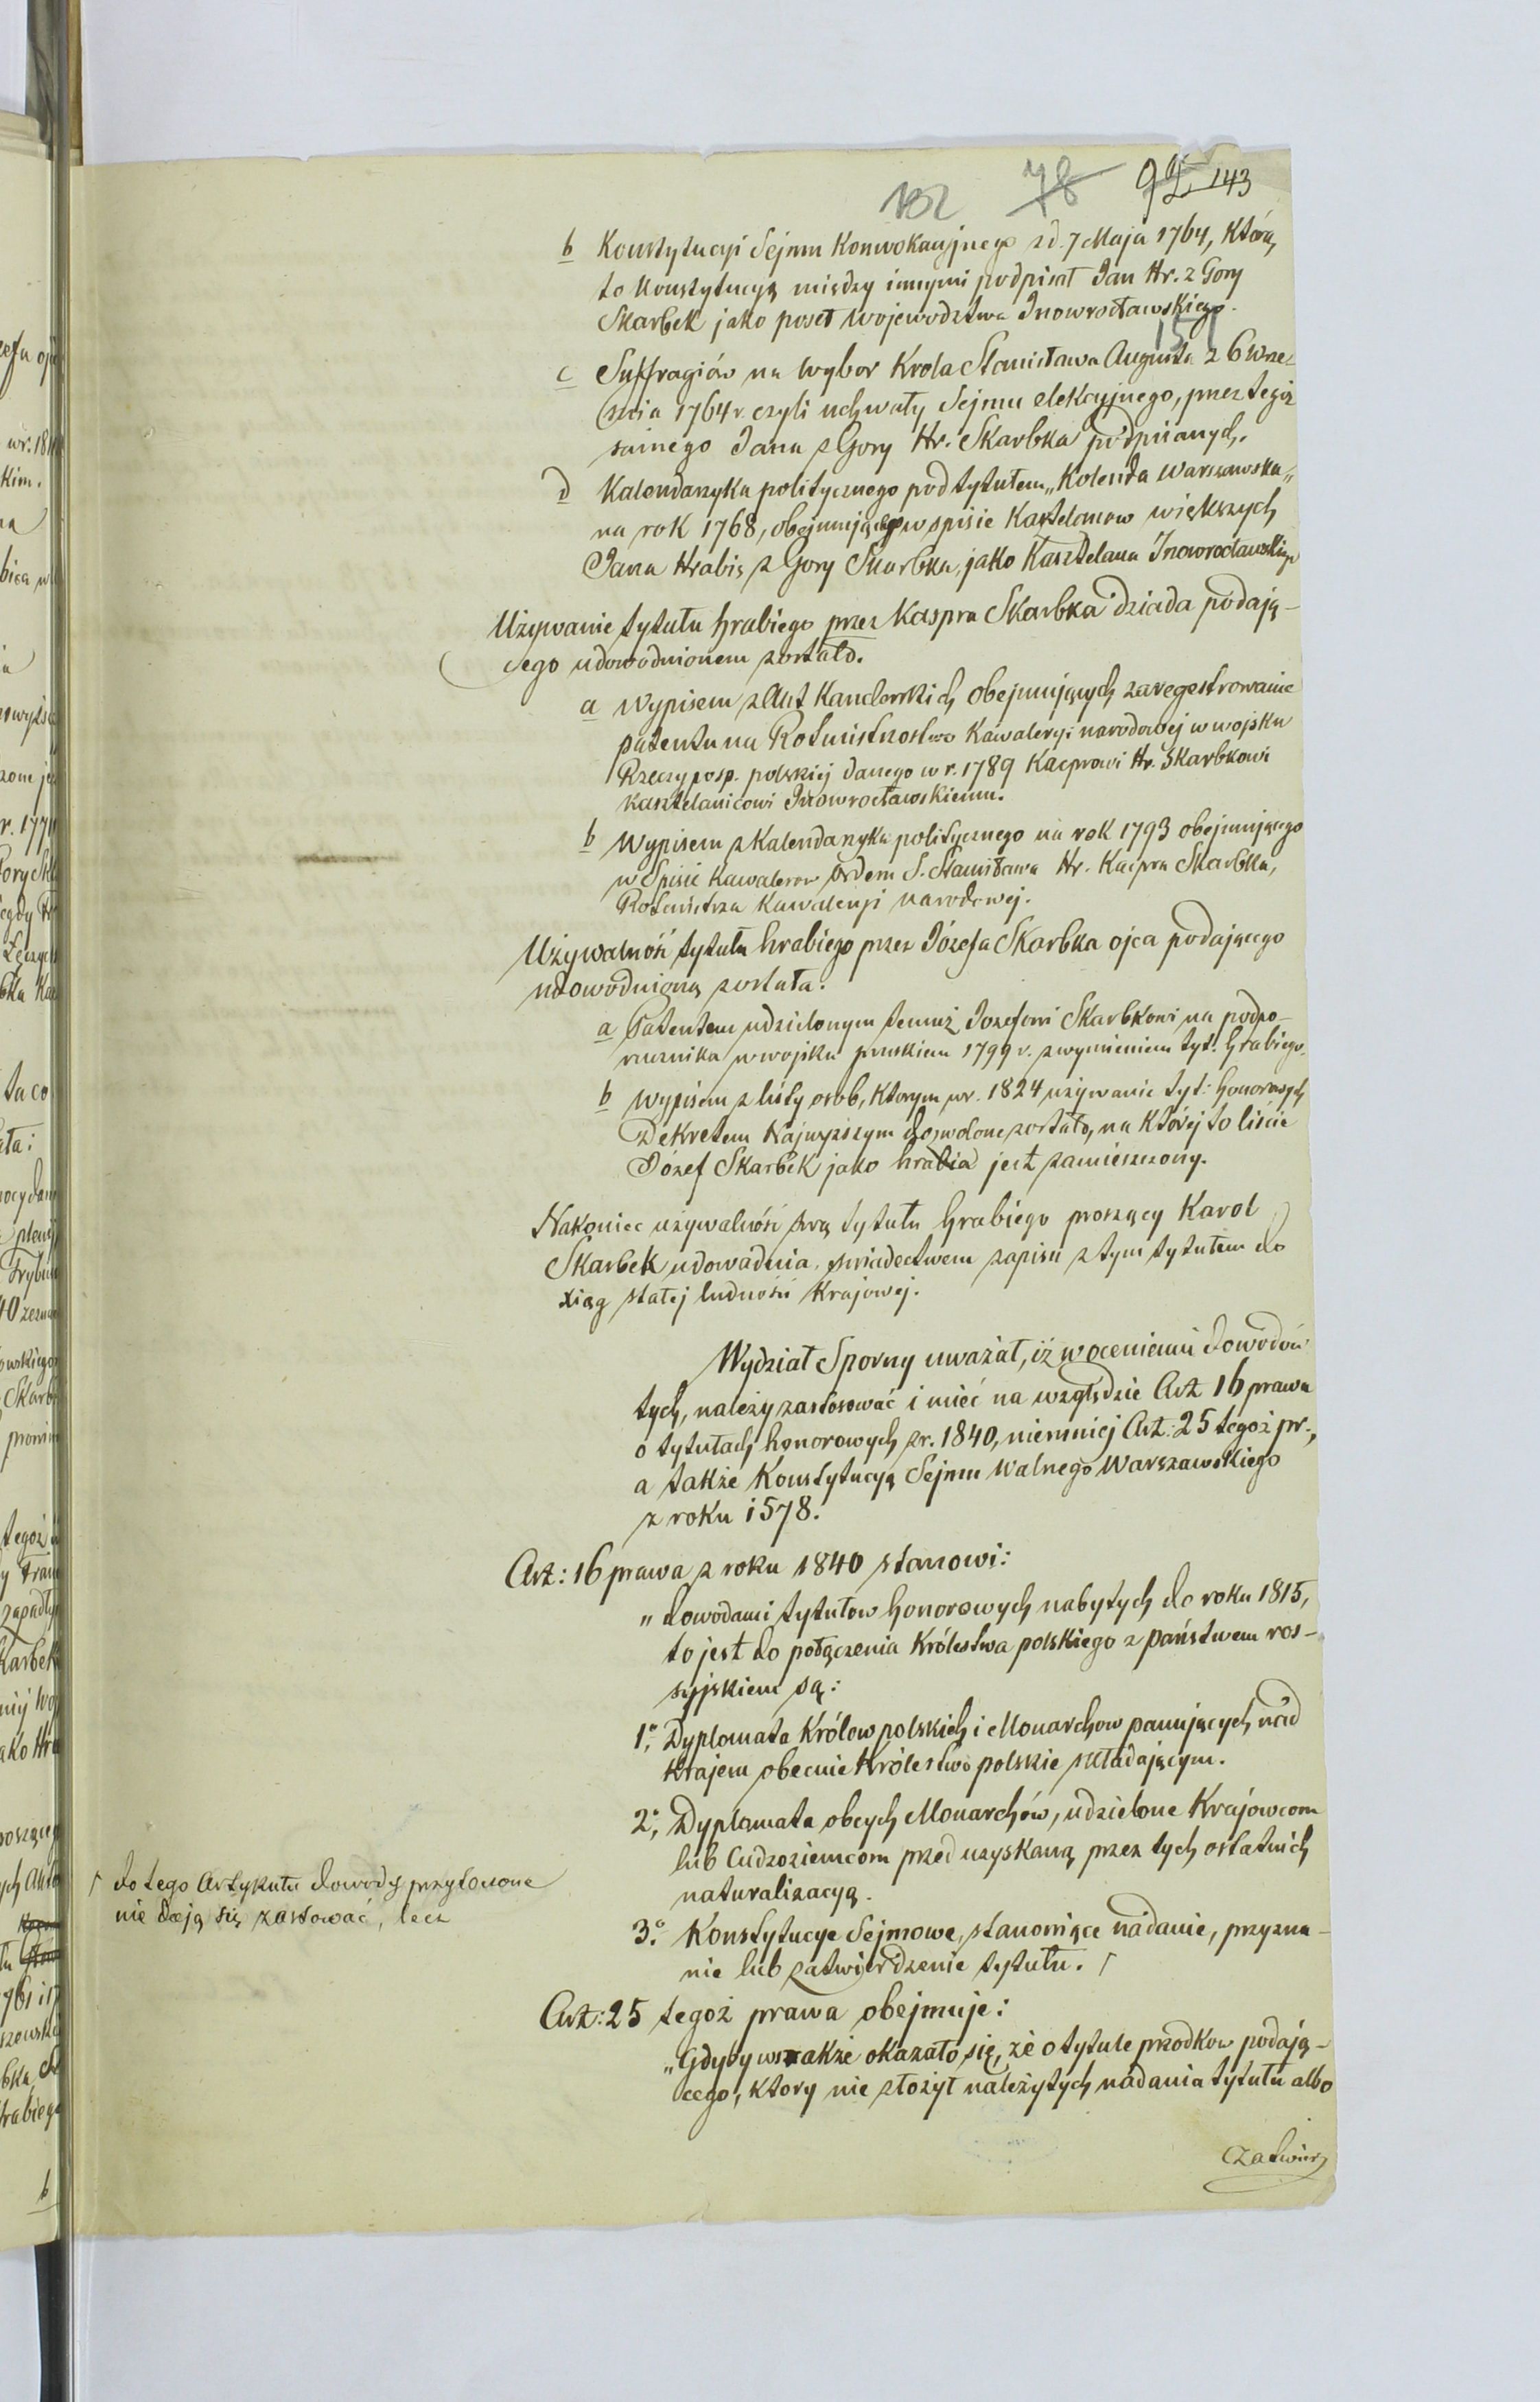 132 78 92 143
b Konstytucyi Sejmu Konwokacyjnego z d. 7 Maja 1764, którą
to Konstytucyą między innymi podpisał Jan Hr. z Gory
Skarbek jako poseł Województwa Inowrocławskiego.
151
c Suffragiów na wybor Krola Stanisława Augusta z 6 Wrze-
śnia 1764 r. czyli uchwały Sejmu elekcyjnego, przez tegoż
samego Jana z Gory Hr. Skarbka podpisanych.
d Kalendarzyka politycznego pod tytułem „Kolenda Warszawska„
na rok 1768, obejmującego w spisie Kasztelanow większych
Jana Hrabię z Gory Skarbka, jako Kasztelana Inowrocławskiego
Używanie tytułu hrabiego przez Kaspra Skarbka dziada podają-
cego udowodnionem zostało.
a Wypisem z Akt Kanclerskich obejmujących zaregestrowanie
patentu na Rotmistrzostwo Kawaleryi narodowej w wojsku
Rzeczyposp. polskiej danego w r. 1789 Kacprowi Hr. Skarbkowi
Kasztelanicowi Inowrocławskiemu.
b Wypisem z Kalendarzyka politycznego na rok 1793 obejmującego
w Spisie Kawalerow Orderu S. Stanisława Hr. Kacpra Skarbka,
Rotmistrza Kawaleryi narodowej.
Używalność tytułu hrabiego przez Józefa Skarbka ojca podającego
udowodnioną została.
a Patentem udzielonym temuż Jozefowi Skarbkowi na podpo-
rucznika w wojsku pruskiem 1799 r. z wymienieniem tyt: hrabiego.
b Wypisem z listy osob, ktorym w r. 1824 używanie tyt: honorowych
Dekretem Najwyższym dozwolone zostało, na której to liście
Józef Skarbek jako hrabia jest zamieszczony.
Nakoniec używalność swą tytułu hrabiego proszący Karol
Skarbek udowadnia świadectwem zapisu z tym tytułem do
xiąg stałej ludności Krajowej.
Wydział Sporny uważał, iż w ocenieniu dowodów
tych, należy zastosować i mieć na względzie Art 16 prawa
o tytułach honorowych z r. 1840, niemniej Art: 25 tegoż pr.,
a także Konstytucyą Sejmu Walnego Warszawskiego
z roku 1578.
Art: 16 prawa z roku 1840 stanowi:
„dowodami tytułow honorowych nabytych do roku 1815,
to jest do połączenia Królestwa polskiego z państwem ros-
syjskiem są:
1o; Dyplomata Królow polskich i Monarchow panujących nad
Krajem obecnie Królestwo polskie składającym.
2o; Dyplomata obcych Monarchów, udzielone Krajowcom
lub Cudzoziemcom przed uzyskaną przez tych ostatnich
naturalizacyą.
3o. Konstytucye Sejmowe, stanowiące nadanie, przyzna-
nie lub zatwierdzenie tytułu. /
/ do tego Artykułu dowody przytoczone
nie dają się zastosować, lecz
Art: 25 tegoż prawa obejmuje:
„Gdyby wszakże okazało się, że o tytule przodkow podają-
cego, ktory nie złożył należytych nadania tytułu albo
zatwier